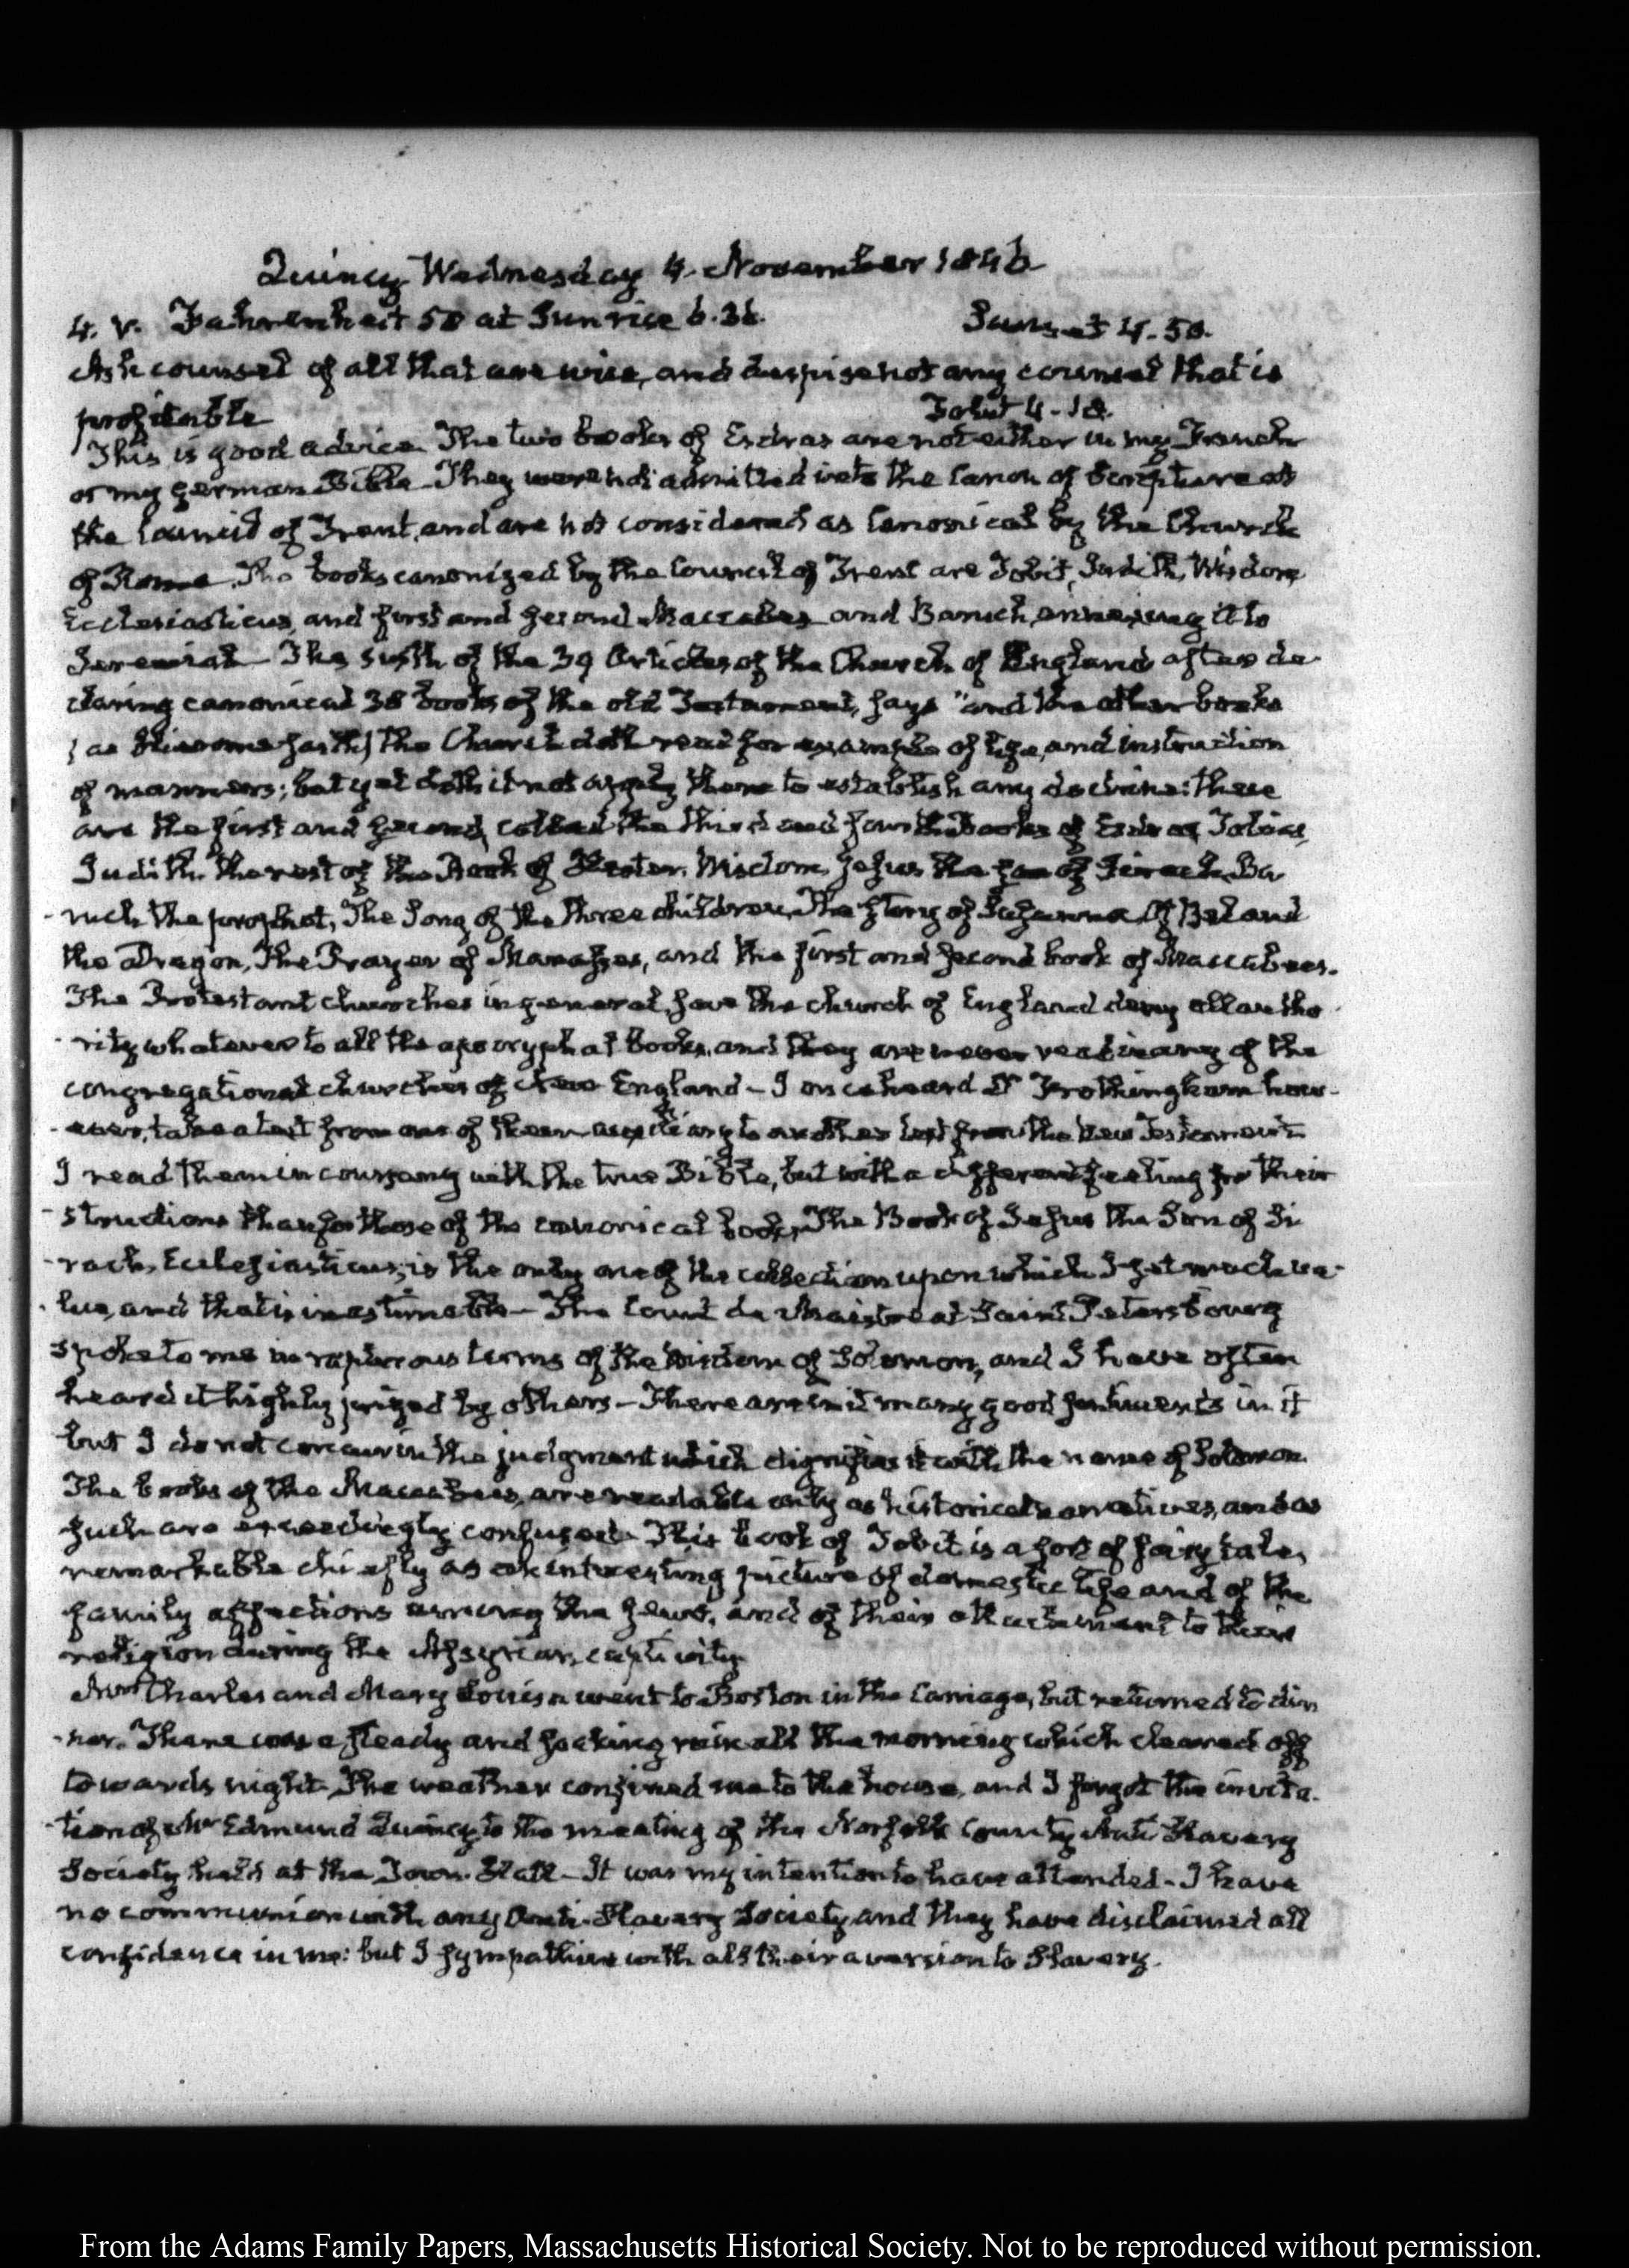 Quincy Wednesday 4. November 1846
4. V. Fahrenheit 58 at Sunrise 6.36. Sunset 4.50.
Ask counsel of all that are wise, and despise not any counsel that is
profitable Tobit 4-18.
This is good advice The two books of Esdras are not either in my French
or my German Bible They were not admitted into the Canon of Scripture at
the Council of Trent, and are not considered as Canonical by the Church
of Rome. The books canonized by the Council of Trent are Tobit, Judith, Wisdom,
Ecclesiasticus, and first and second Maccabees and Baruch, annexing it to
Jeremiah - The sixth of the 39 Articles of the Church of England after de
claring canonical 38 books of the old Testament, says "and the other books
(as Hierome saith) the Church doth read for example of life, and instruction
of manners; but yet doth it not apply them to establish any doctrine: these
are the first and second, called the third and fourth books of Esdras Tobias,
Judith. the rest of the Book of Hester. Wisdom, Jesus the son of Sirach, Ba
-ruch the prophet, The Song of the three children, The story of Susanna, Of Bel and
the Dragon, The Prayer of Manasses, and the first and second book of Maccabees.
The Protestant churches in general, save the church of England deny all autho
-rity whatever to all the apocryphal books, and they are never read in any of the
congregational churches of New England - I once heard Dr Frothingham how-
-ever, take a text from one of them as auxiliary to another text from the New Testament
I read them in company with the true Bible, but with a different feeling for their in
-structions than for those of the canonical books, The Book of Jesus the Son of Si
-rach, Ecclesiasticus, is the only one of the collection upon which I set much va-
-lue, and that is inestimable - The Count de Maistre at Saint Petersbourg
spoke to me in rapturous terms of the Wisdom of Solomon, and I have often
heard it highly prized by others - There are in it many good sentiments in it
but I do not concur in the judgment which dignifies it with the name of Solomon.
The books of the Maccabees, are readable only as historical narratives, and as
such are exceedingly confused. This book of Tobit is a sort of fairy tale,
remarkable chiefly as an interesting picture of domestic life and of the
family affections among the Jews, and of their attachment to their
religion during the Assyrian captivity
Mrs Charles and Mary Louisa went to Boston in the Carriage, but returned to din
-ner. There was a steady and soaking rain all the morning which cleared off
towards night. The weather confined me to the house, and I forgot the invita-
-tion of Mr Edmund Quincy, to the meeting of the Norfolk County Anti Slavery
Society held at the Town Hall - It was my intention to have attended - I have
no communion with any Anti-Slavery Society, and they have disclaimed all
confidence in me: but I sympathise with all their aversion to Slavery.
From the Adams Family Papers, Massachusetts Historical Society. Not to be reproduced without permission.